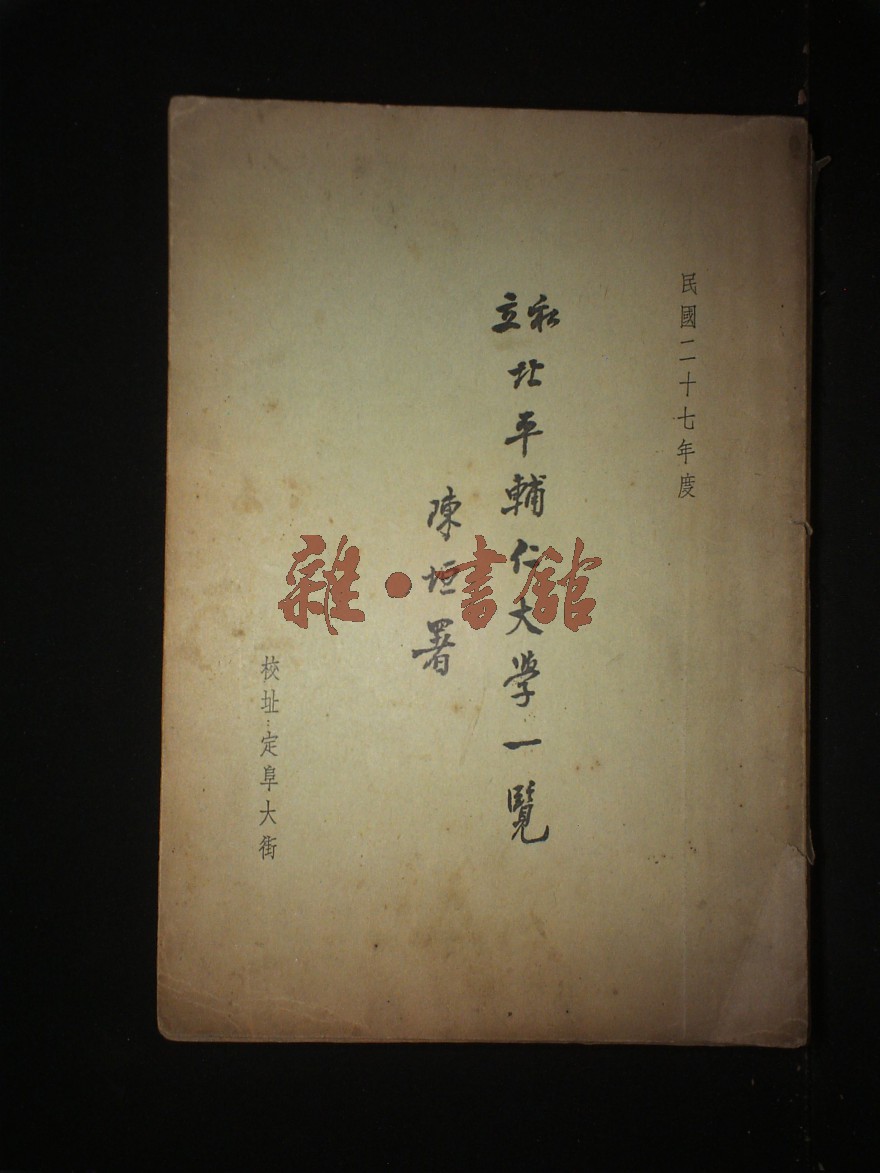 民國二十七年度
私立北平輔仁大学一覽
陳垣署
校址：定阜大街
雜·書館